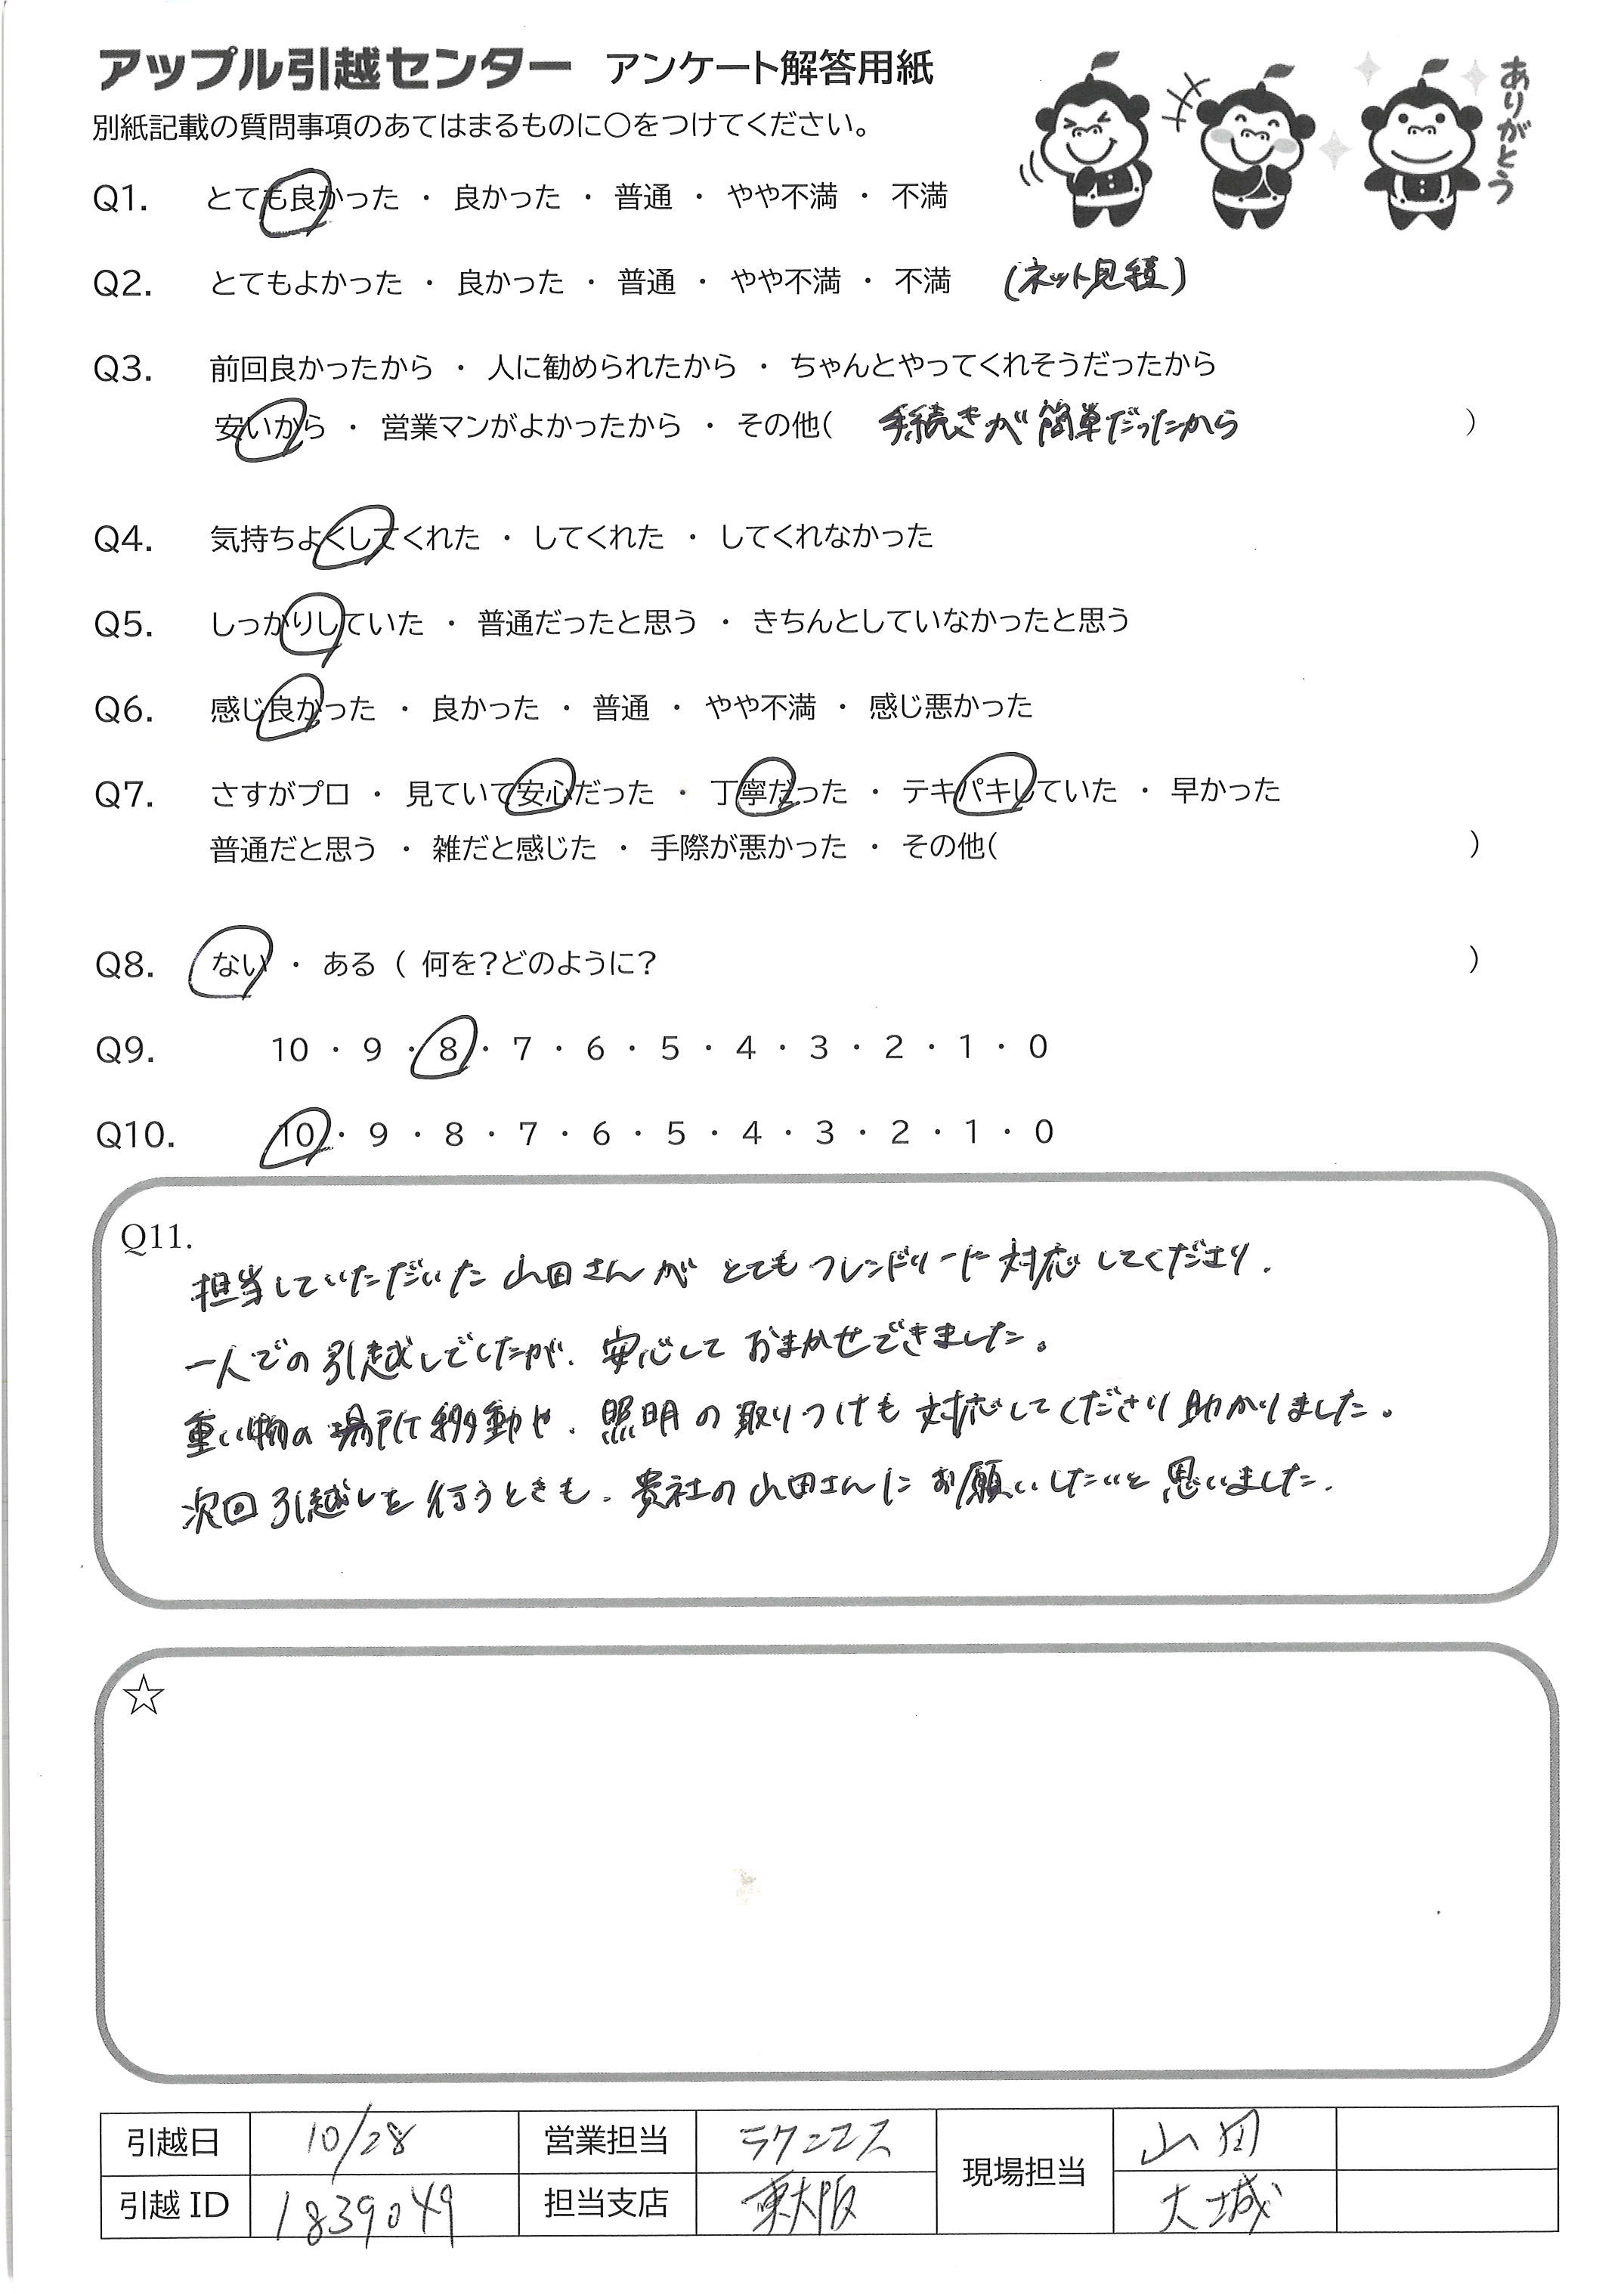 アップル引越センター アンケート解答用紙
ありがとう
別紙記載の質問事項のあてはまるものに○をつけてください。
Q1. とても良かった ・ 良かった ・ 普通 ・ やや不満 ・ 不満
Q2. とてもよかった ・ 良かった ・ 普通 ・ やや不満 ・ 不満 (ネット見積)
Q3. 前回良かったから ・ 人に勧められたから ・ ちゃんとやってくれそうだったから
安いから ・ 営業マンがよかったから ・ その他( 手続きが簡単だったから )
Q4. 気持ちよくしてくれた ・ してくれた ・ してくれなかった
Q5. しっかりしていた ・ 普通だったと思う ・ きちんとしていなかったと思う
Q6. 感じ良かった ・ 良かった ・ 普通 ・ やや不満 ・ 感じ悪かった
Q7. さすがプロ ・ 見ていて安心だった ・ 丁寧だった ・ テキパキしていた ・ 早かった
普通だと思う ・ 雑だと感じた ・ 手際が悪かった ・ その他( )
Q8. ない ・ ある ( 何を?どのように? )
Q9. 10 ・ 9 ・ 8 ・ 7 ・ 6 ・ 5 ・ 4 ・ 3 ・ 2 ・ 1 ・ 0
Q10. 10 ・ 9 ・ 8 ・ 7 ・ 6 ・ 5 ・ 4 ・ 3 ・ 2 ・ 1 ・ 0
Q11.
担当していただいた山田さんがとてもフレンドリーに対応してくださり、
一人での引越しでしたが、安心しておまかせできました。
重い物の場所移動や、照明の取りつけも対応してくださり助かりました。
次回引越しを行うときも、貴社の山田さんにお願いしたいと思いました。
☆
引越日 10/28 営業担当 ラクニコス 現場担当 山田
引越ID 1839049 担当支店 東大阪 大城